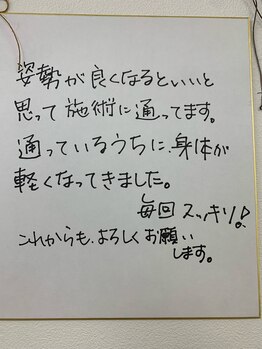 姿勢が良くなるといいと
思って施術に通ってます。
通っているうちに、身体が
軽くなってきました。
毎回スッキリ!
これからも、よろしくお願い
します。